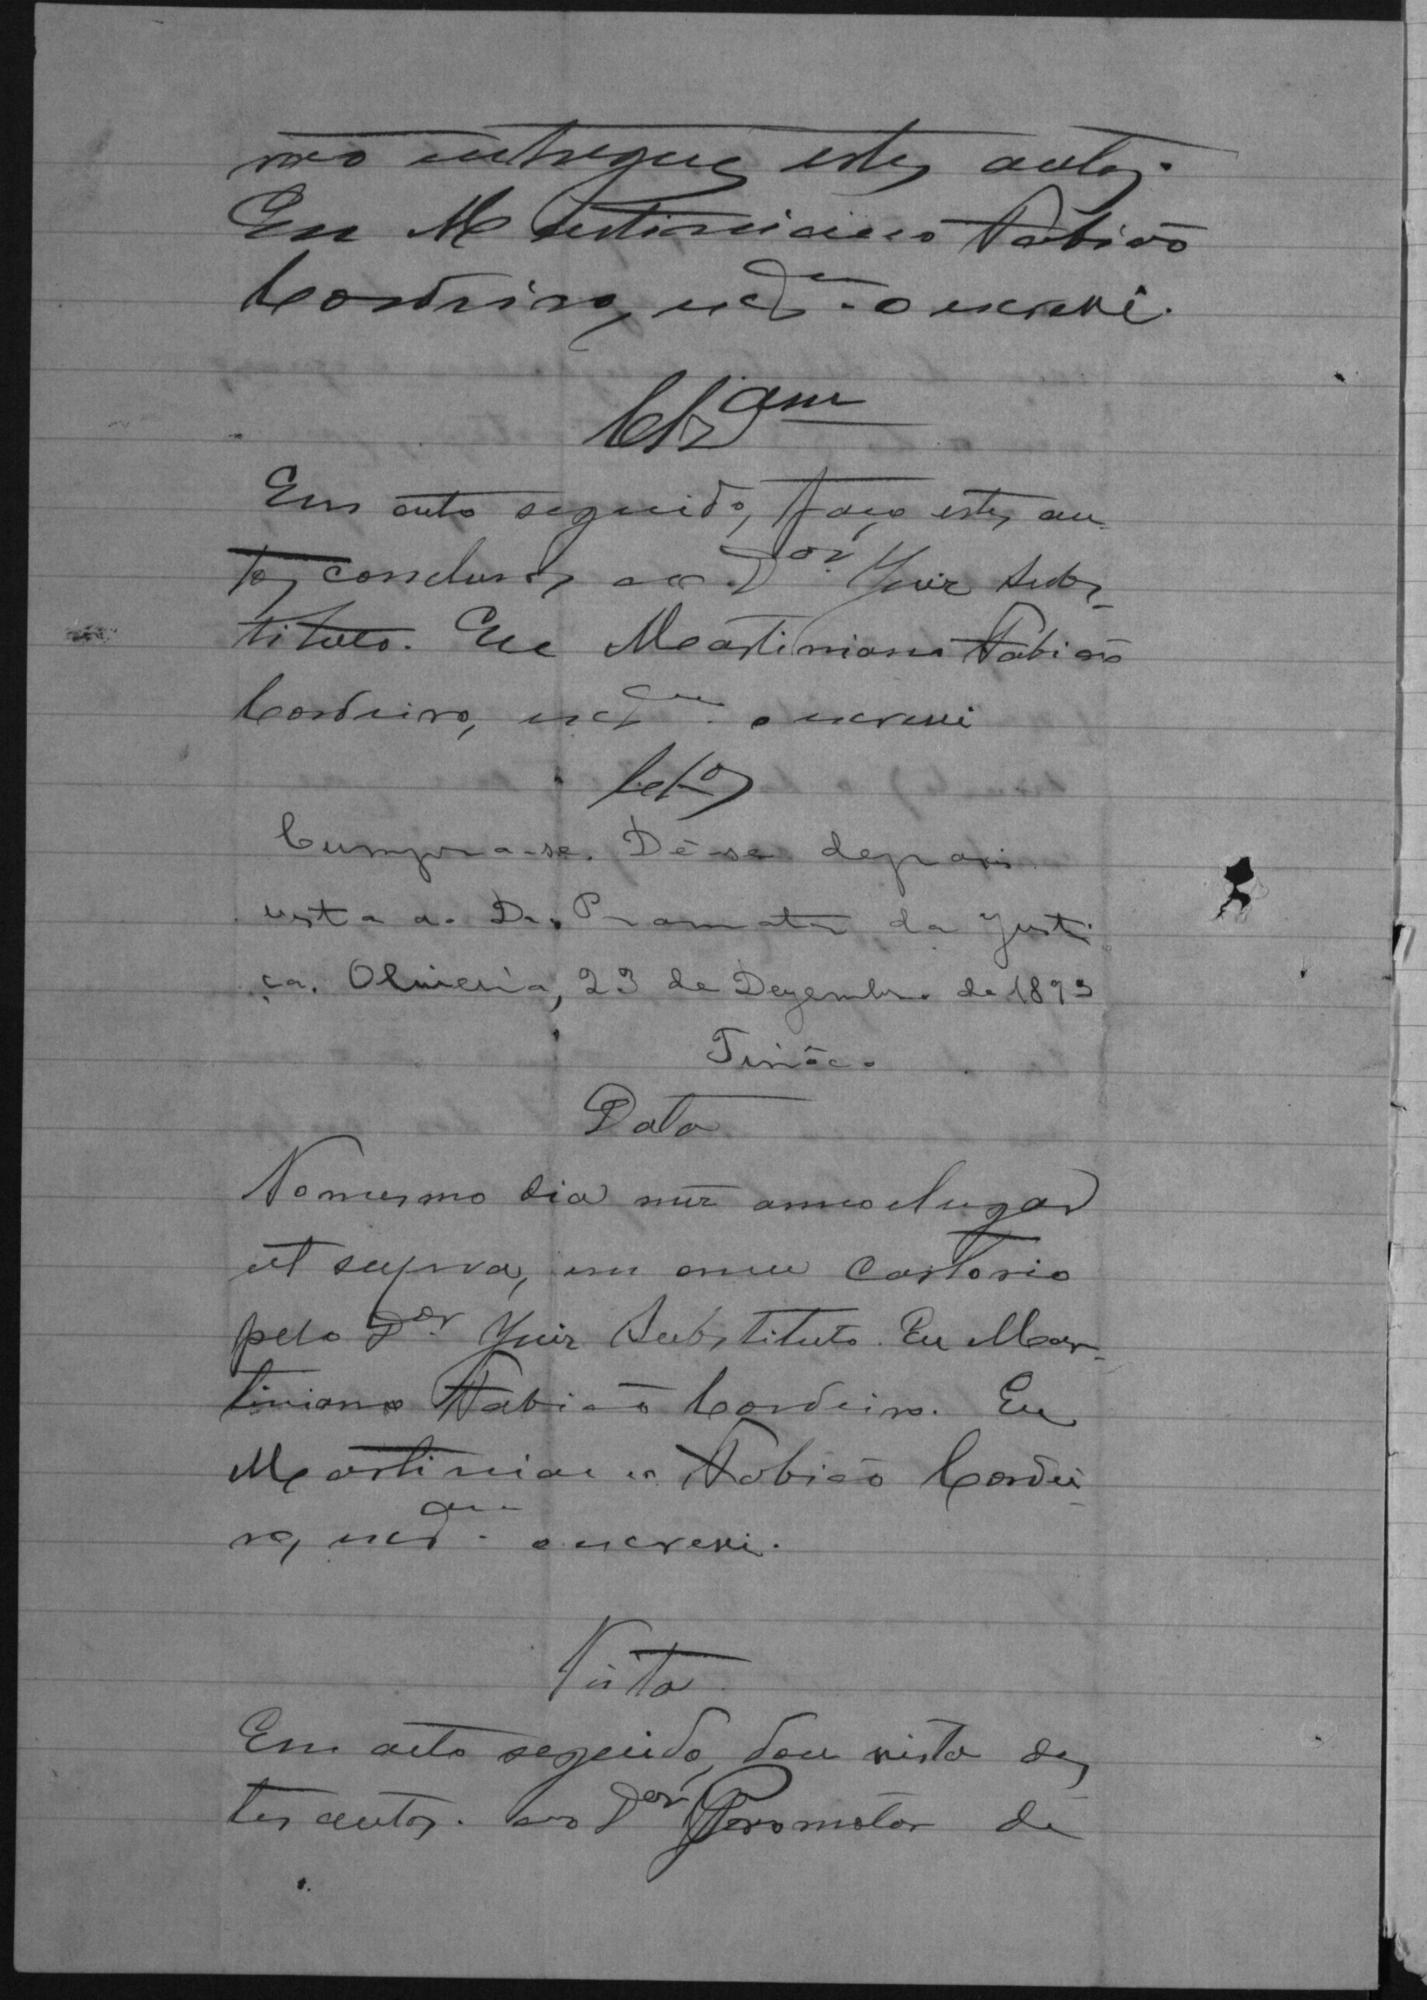 rão entregues estes autos.
Eu Martiniano Fabião
Cordeiro, escram. o escrevi.
Clsam
Em acto seguido, faço estes au-
tos conclusos ao Dor. Juiz Subs-
tituto. Eu Martiniano Fabião
Cordeiro, escram. o escrevi
Clos
Cumpra-se. Dê-se depois
vista ao Dr. Promotor da Justi
ça. Oliveira, 23 de Dezembro de 1893
Data
No mesmo dia mez anno e lugar
ut supra, em meu Cartorio
pelo Dor. Juiz Substituto. Eu Mar-
tiniano Fabião Cordeiro. Eu
Martiniano Fabião Cordei
ro, escram. o escrevi.
Vista
Em acto seguido, dou vista des
tes autos. ao Dor. Promotor de